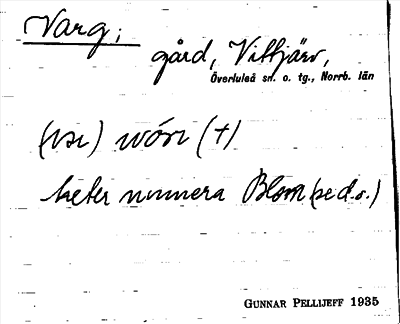 Varg;
gård, Vittjärv,
Överluleå sn. o. tg., Norrb. län
heter numera Blom (se d.o.)
GUNNAR PELLIJEFF 1935